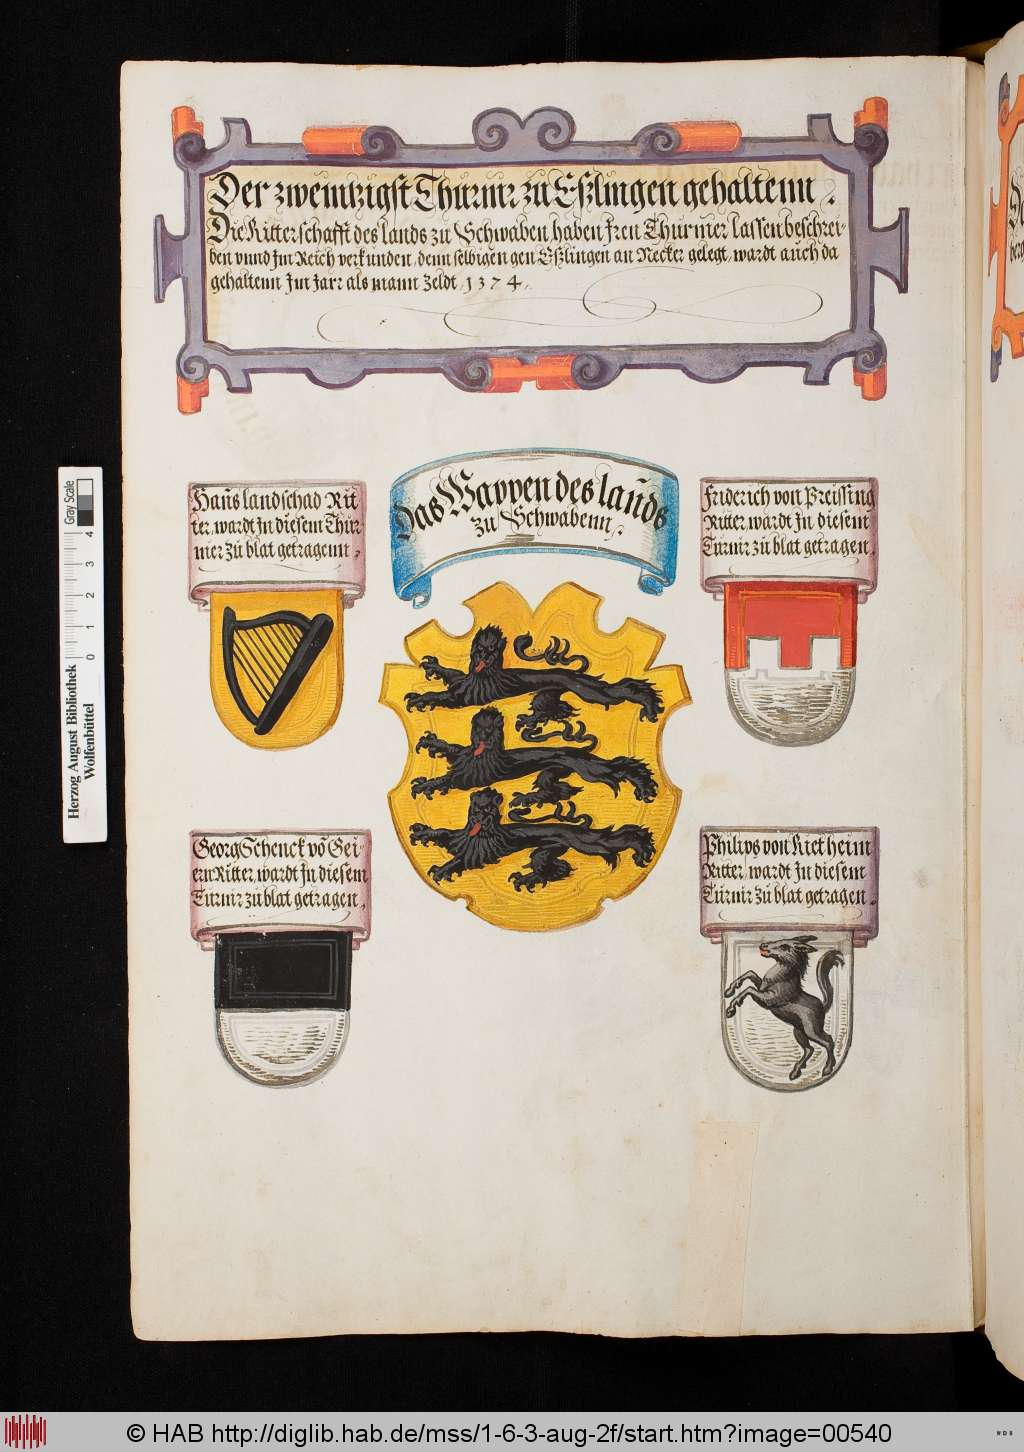 Der zweintzigst Thurnir zu Eßlingen gehaltenn.
Die Ritterschafft des lands zu Schwaben haben Iren Thurnier lassen beschrei-
ben vnnd Im Reich verkunden, denn selbigen gen Eßlingen an Necker gelegt, wardt auch da
gehaltenn Im Jarr als mann Zeldt, 1374.
Hanns landschad Rit-
ter, wardt In diesem Thur-
nier Zu blat getragenn,
Das Wappen des lannds
zu Schwabenn,
Friderich von Preissing
Ritter, wardt In diesem
Turnir zu blat getragen,
Georg Schenck vō Gei-
ern Ritter, wardt In diesem
Turnir zu blat getragen,
Philips von Rietheim
Ritter, wardt In diesem
Turnir Zu blat getragen,
Herzog August Bibliothek
Wolfenbüttel
0 1 2 3 4
Gray Scale
© HAB http://diglib.hab.de/mss/1-6-3-aug-2f/start.htm?image=00540